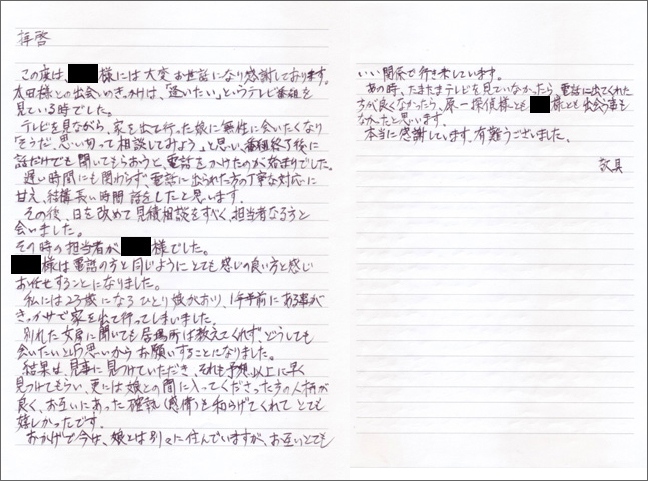 拝啓
この度は、様には大変お世話になり感謝しております。
太田様との出会いのきっかけは、「逢いたい」というテレビ番組を
見ている時でした。
テレビを見ながら、家を出て行った娘に無性に会いたくなり
「そうだ、思い切って相談してみよう」と思い、番組終了後に
話だけでも聞いてもらおうと、電話をかけたのが始まりでした。
遅い時間にも関わらず、電話に出られた方の丁寧な対応に
甘え、結構長い時間話をしたと思います。
その後、日を改めて見積相談をすべく、担当者なる方と
会いました。
その時の担当者が様でした。
様は電話の方と同じようにとても感じの良い方と感じ
お任せすることになりました。
私には23歳になるひとり娘がおり、1年半前にある事が
きっかけで家を出て行ってしまいました。
別れた女房に聞いても居場所は教えてくれず、どうしても
会いたいという思いからお願いすることになりました。
結果は、見事に見つけていただき、それも予想以上に早く
見つけてもらい、更には娘との間に入ってくださった方の人柄が
良く、お互いにあった確認(感情)も和らげてくれてとても
嬉しかったです。
おかげで今は、娘とは別々に住んでいますが、お互いとても
いい関係で行き来しています。
あの時、たまたまテレビを見ていなかったら、電話に出てくれた
方が良くなかったら、原一探偵様とも様とも出会う事も
なかったと思います。
本当に感謝しています。有難うございました。
敬具